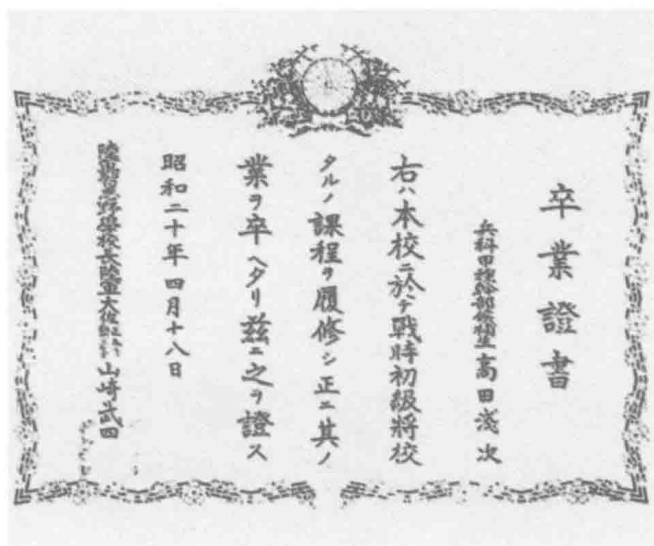 卒業證書
兵科甲種幹部候補生 高田淺次
右ハ本校ニ於テ戰時初級將校
タルノ課程ヲ履修シ正ニ其ノ
業ヲ卒ヘタリ茲ニ之ヲ證ス
昭和二十年四月十八日
學校長陸軍大佐 山崎武四